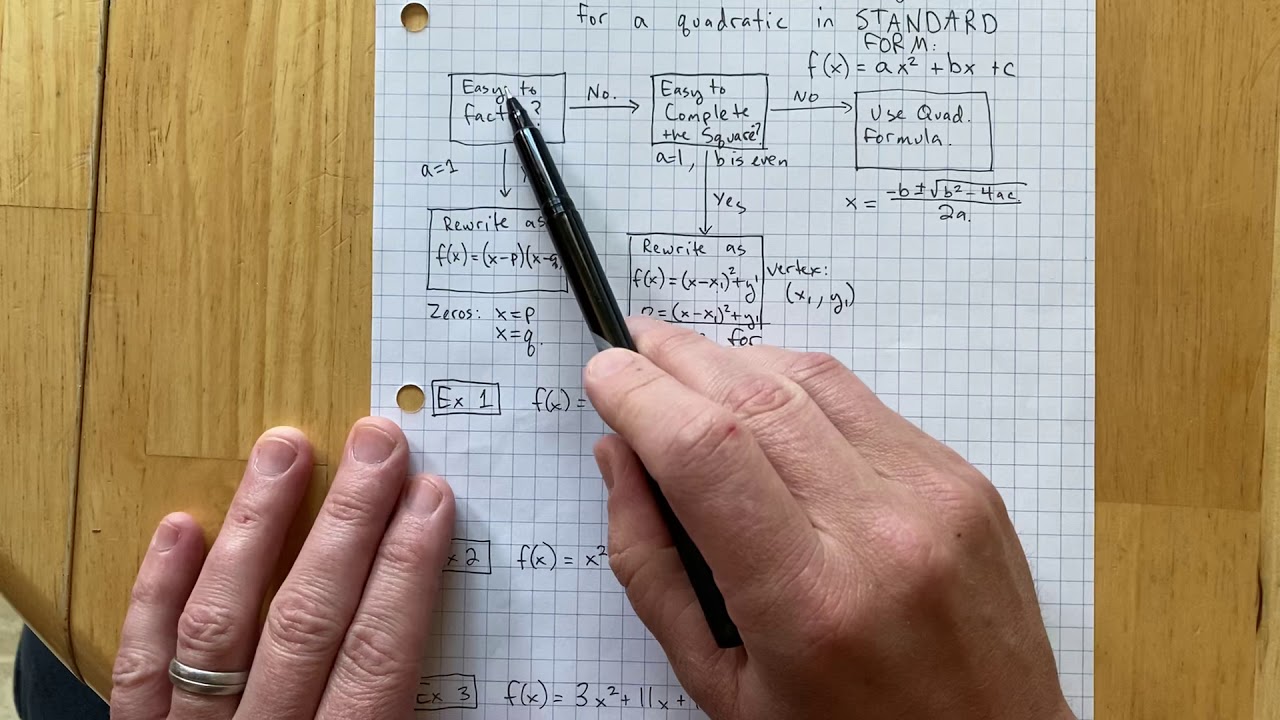 for a quadratic in STANDARD
FORM:
f(x) = ax² + bx + c
Easy to
No.
Easy to
Complete
the Square?
No
Use Quad.
Formula.
a=1
a=1, b is even
Yes
x = -b ± √b² - 4ac
2a
Rewrite as
f(x) = (x-p)(x-q
Zeros: x=p
x=q
Rewrite as
f(x) = (x-x₁)² + y₁
= (x-x₁)² + y₁
for
vertex:
(x₁, y₁)
Ex 1 f(x) =
2 f(x) = x²
Ex 3 f(x) = 3x² + 11x +